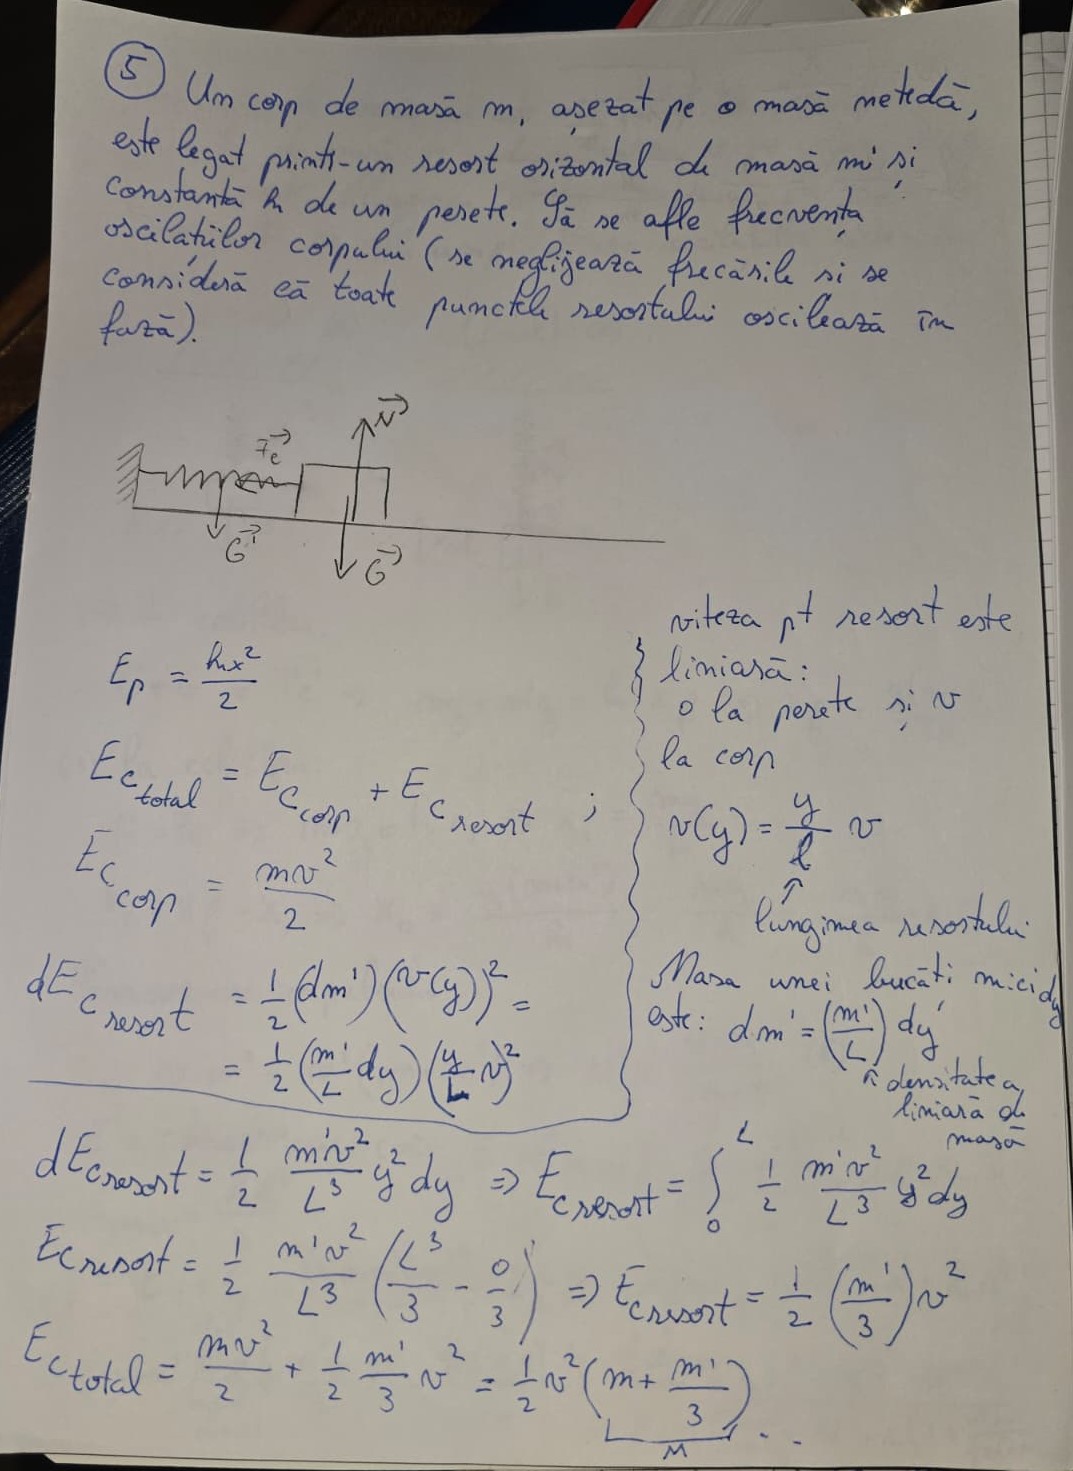 5 Un corp de masă m, așezat pe o masă netedă,
este legat printr-un resort orizontal de masă m' și
constantă k de un perete. Să se afle frecvența
oscilațiilor corpului (se neglijează frecările și se
consideră că toate punctele resortului oscilează în
fază).
N
Fe
G'
G
Ep = kx²/2
Ec total = Ec corp + Ec resort ;
Ec corp = mv²/2
dEc resort = 1/2 (dm') (v(y))² =
= 1/2 (m'/L dy) (y/L v)²
viteza pt resort este
liniară:
0 la perete și v
la corp
v(y) = y/l v
↑
lungimea resortului
Masa unei bucăți mici dy
este: dm' = (m'/L) dy
↑ densitatea
liniară de
masă
dEc resort = 1/2 m'v²/L³ y² dy => Ec resort = ∫₀ᴸ 1/2 m'v²/L³ y² dy
Ec resort = 1/2 m'v²/L³ (L³/3 - 0/3) => Ec resort = 1/2 (m'/3) v²
Ec total = mv²/2 + 1/2 m'/3 v² = 1/2 v² (m + m'/3) . .
M